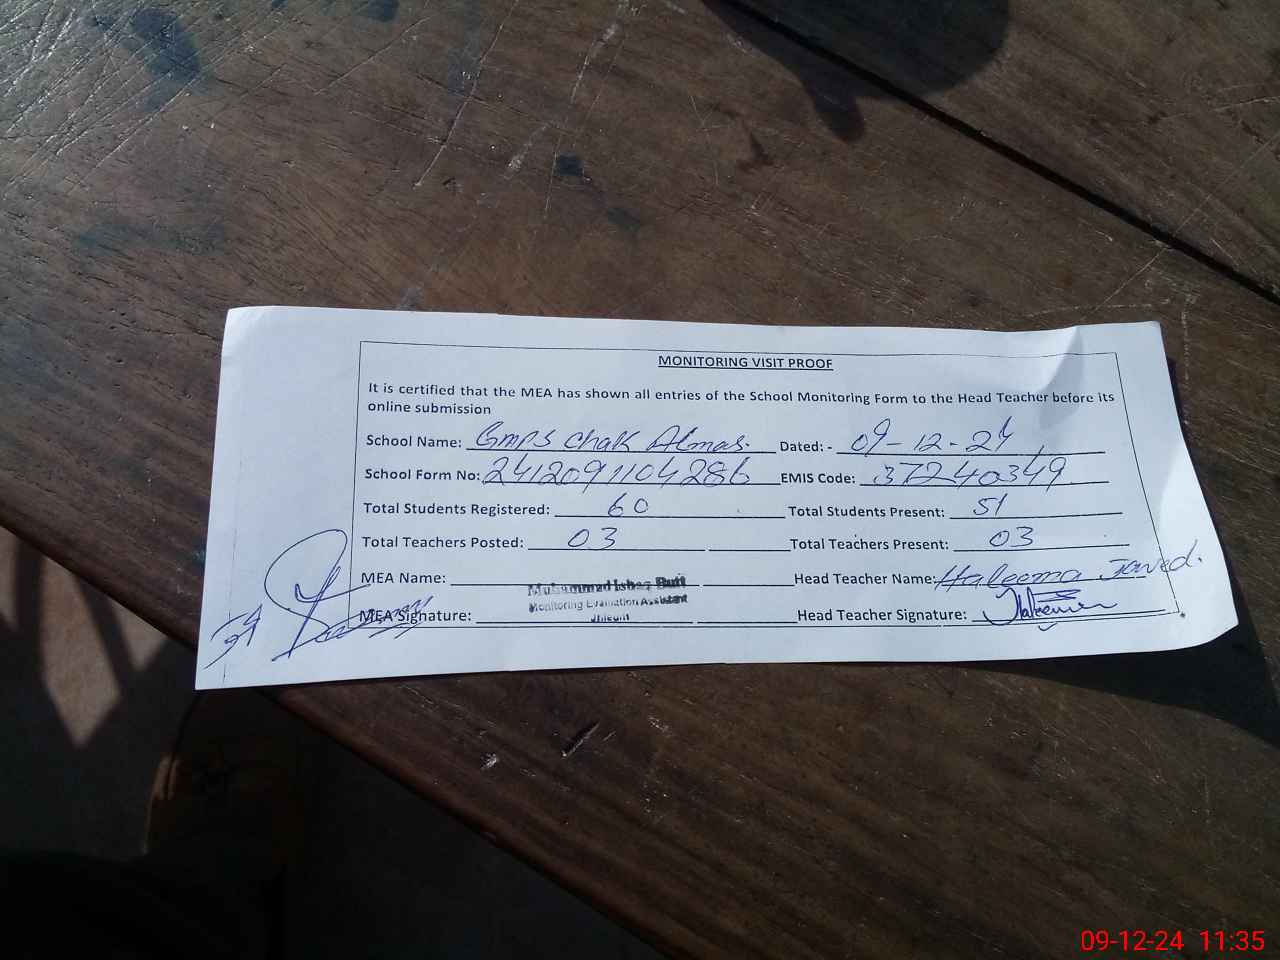 MONITORING VISIT PROOF
It is certified that the MEA has shown all entries of the School Monitoring Form to the Head Teacher before its
online submission
School Name: GMPS Chak Almas. Dated: - 09-12-24
School Form No: 2412091104286 EMIS Code: 37240349
Total Students Registered: 60 Total Students Present: 51
Total Teachers Posted: 03 Total Teachers Present: 03
MEA Name: Muhammad Ishaq Butt Head Teacher Name: Haleema Javed.
Monitoring Evaluation Assistant
Jhleum
MEA Signature: Head Teacher Signature: Haleema
09-12-24 11:35